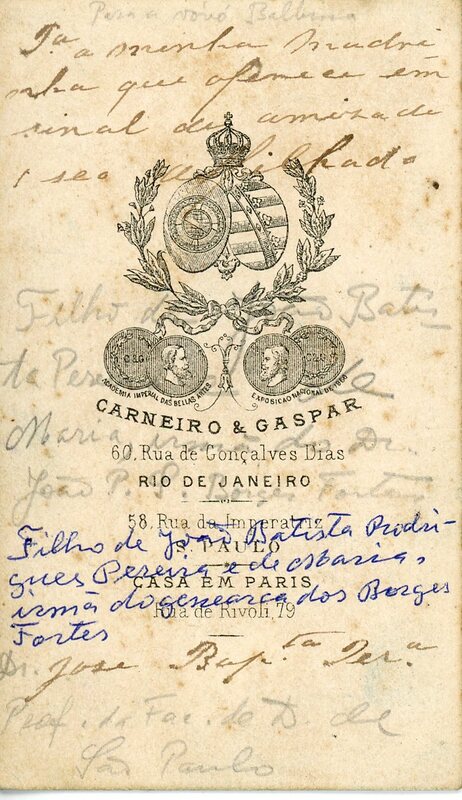 Para a vóvó Balbina
Pª a minha madri
nha que oferece em
sinal de amizade
seo afilhado
ACADEMIA IMPERIAL DAS BELLAS ARTES
EXPOSIÇÃO NACIONAL DE 1866
CARNEIRO & GASPAR
60, Rua de Gonçalves Dias
RIO DE JANEIRO
58, Rua da Imperatriz
S. PAULO
CASA EM PARIS
Rua de Rivoli, 79
Filho de João Batis
ta Pere de
Maria irmã do Dr.
João P. Borges Fortes
Filho de João Batista Rodri-
gues Pereira e de Maria,
irmã do genearca dos Borges
Fortes
Dr. Jose Bap.ta Per.a
Prof. da Fac. de D. de
São Paulo